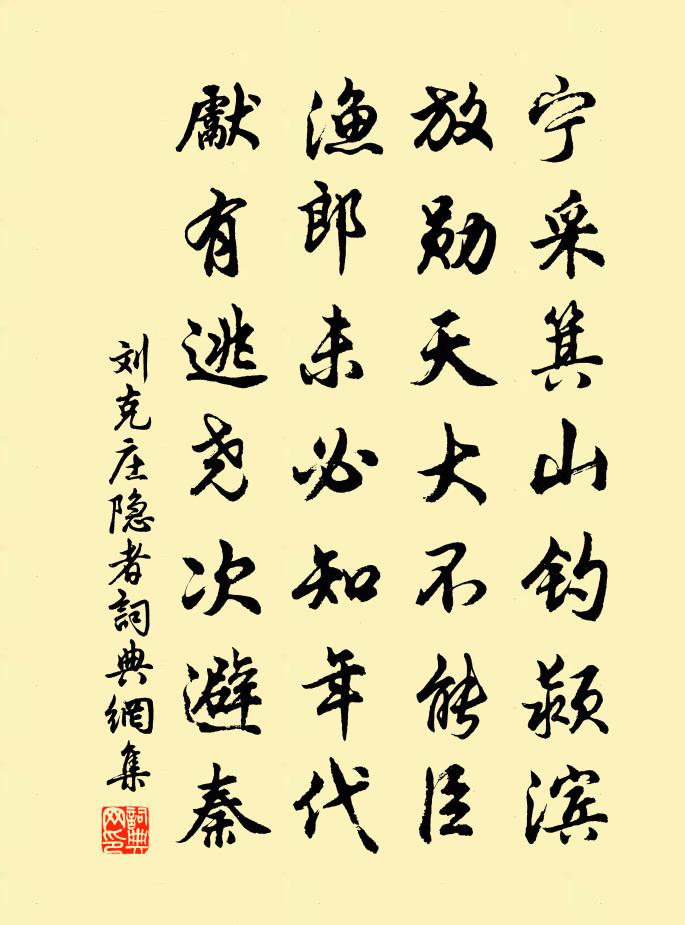 宁采箕山钓颍滨
放勋天大不能臣
渔郎未必知年代
獻有逃尧次避秦
刘克庄隐者詞典網集
詞典网印